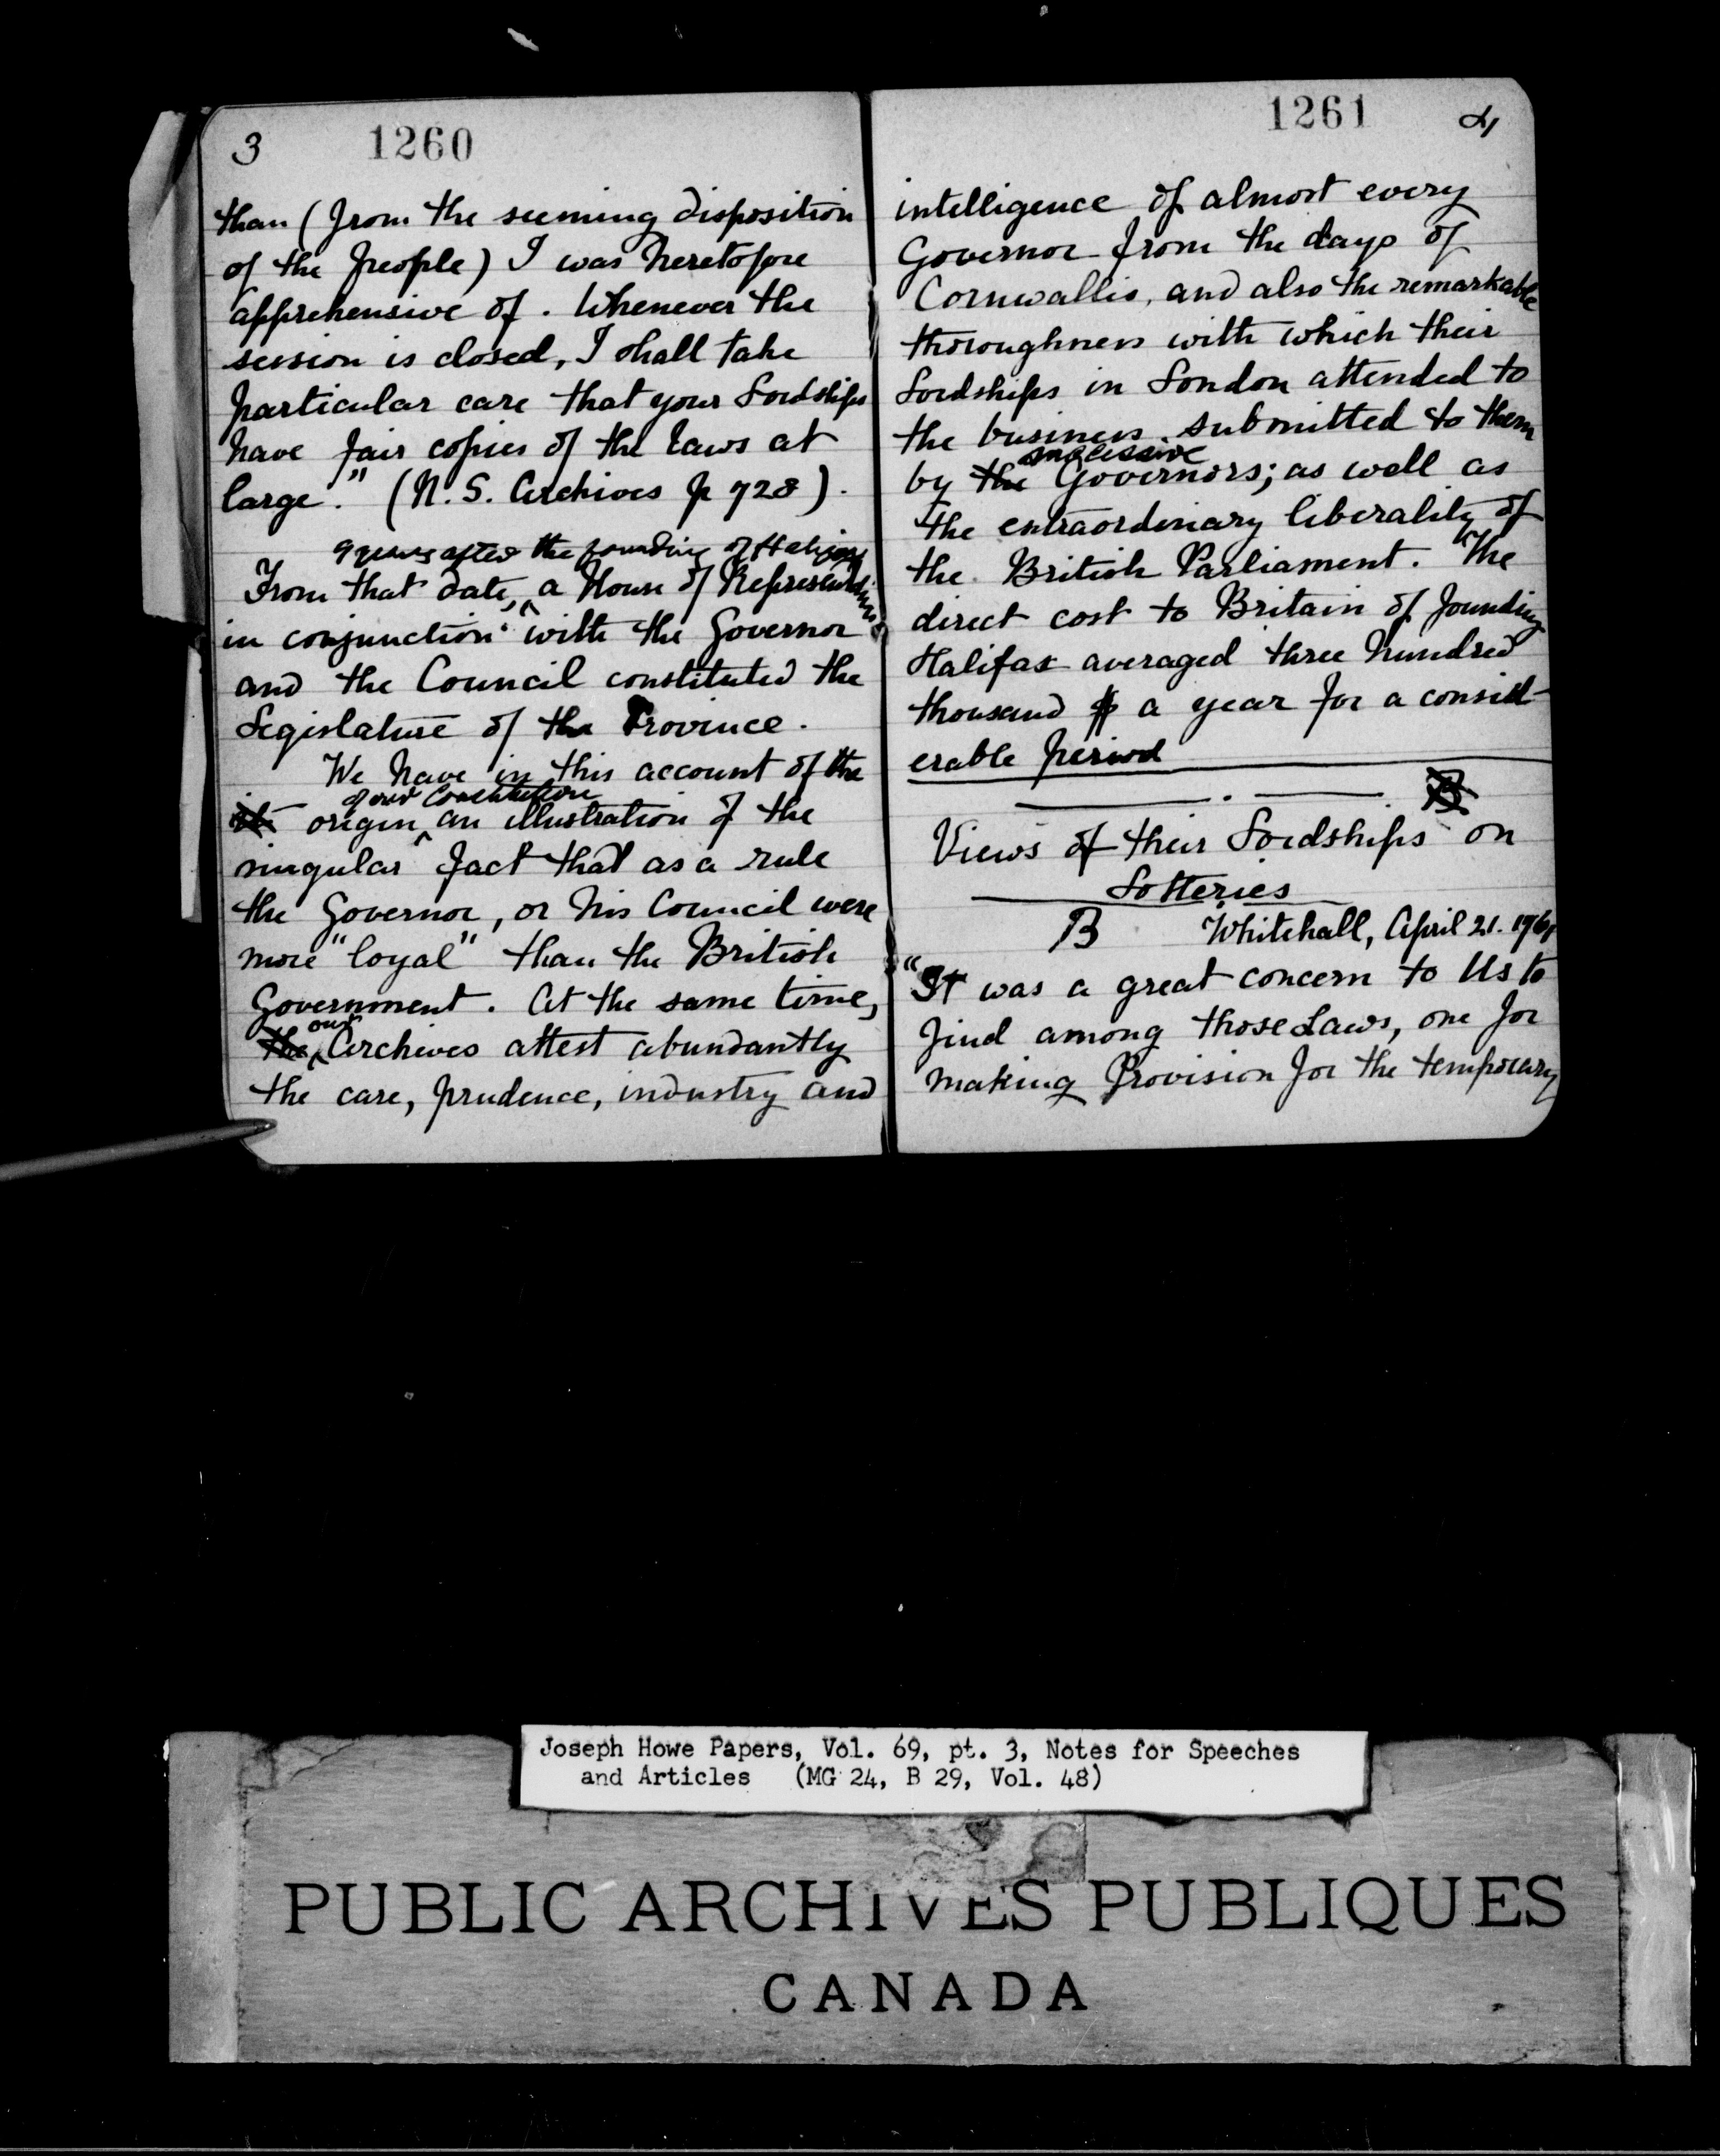 3 1260
than (from the seeming disposition
of the People) I was heretofore
apprehensive of. Whenever the
session is closed, I shall take
particular care that your Lordships
have fair copies of the Laws at
large." (N. S. Archives p 728).
9 years after the founding of Halifax
From that date, a House of Representatives
in conjunction with the Governor
and the Council constituted the
Legislature of the Province.
We have in this account of the
of our Constitution
origin an illustration of the
singular fact that as a rule
the Governor, or his Council were
more "loyal" than the British
Government. At the same time,
our
the Archives attest abundantly
the care, prudence, industry and
1261 4
intelligence of almost every
Governor from the days of
Cornwallis, and also the remarkable
thoroughness with which their
Lordships in London attended to
the business submitted to them
successive
by the Governors; as well as
the extraordinary liberality of
the British Parliament. The
direct cost to Britain of founding
Halifax averaged three hundred
thousand $ a year for a consid-
erable period
B
Views of their Lordships on
Lotteries
B Whitehall, April 21. 1761
"It was a great concern to Us to
find among those Laws, one for
making Provision for the temporary
Joseph Howe Papers, Vol. 69, pt. 3, Notes for Speeches
and Articles (MG 24, B 29, Vol. 48)
PUBLIC ARCHIVES PUBLIQUES
CANADA